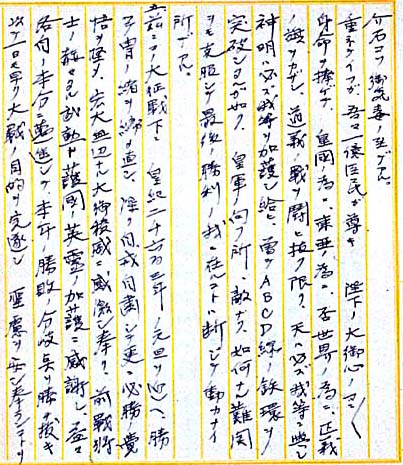 介石コソ御気毒ノ至デアル。
重ネテイフガ、吾々一億臣民ガ尊キ 陛下ノ大御心ノマニ〱
身命ヲ捧ゲテ、皇国ノ為ニ、東亜ノ為ニ、否世界ノ為ニ、正義
ノ鉾ヲカザシ、道義ノ戦ヲ闘ヒ抜ク限リ、天ハ必ズ我等ニ与シ
神明ハ必ズ我等ヲ加護シ給ヒ、啻ニABCD線ノ鉄環ヲ
突破シタルガ如ク、皇軍ノ向フ所ノ敵ナク、如何ナル難関
ヲモ克服シテ最後ノ勝利ノ我ニ在ルコトハ断ジテ動カナイ
所デアル。
茲ニコノ大征戦下ニ 皇紀二千六百三年ノ元旦ヲ迎ヘ、勝
ツテ冑ノ緒ヲ締メ直シ、深ク自戒自粛シテ更ニ必勝ノ覚
悟ヲ堅メ、広大無辺ナル大御稜威ニ感激シ奉リ、前戦将
士ノ赫々タル武勲ト護国ノ英霊ノ加護ニ感謝シ、益々
各自ノ本分ニ邁進シテ、本年ノ勝敗ノ分岐点ヲ勝チ抜キ
以テ一日モ早ク大戦ノ目的ヲ完遂シ 聖慮ヲ安ンジ奉ランコトヲ